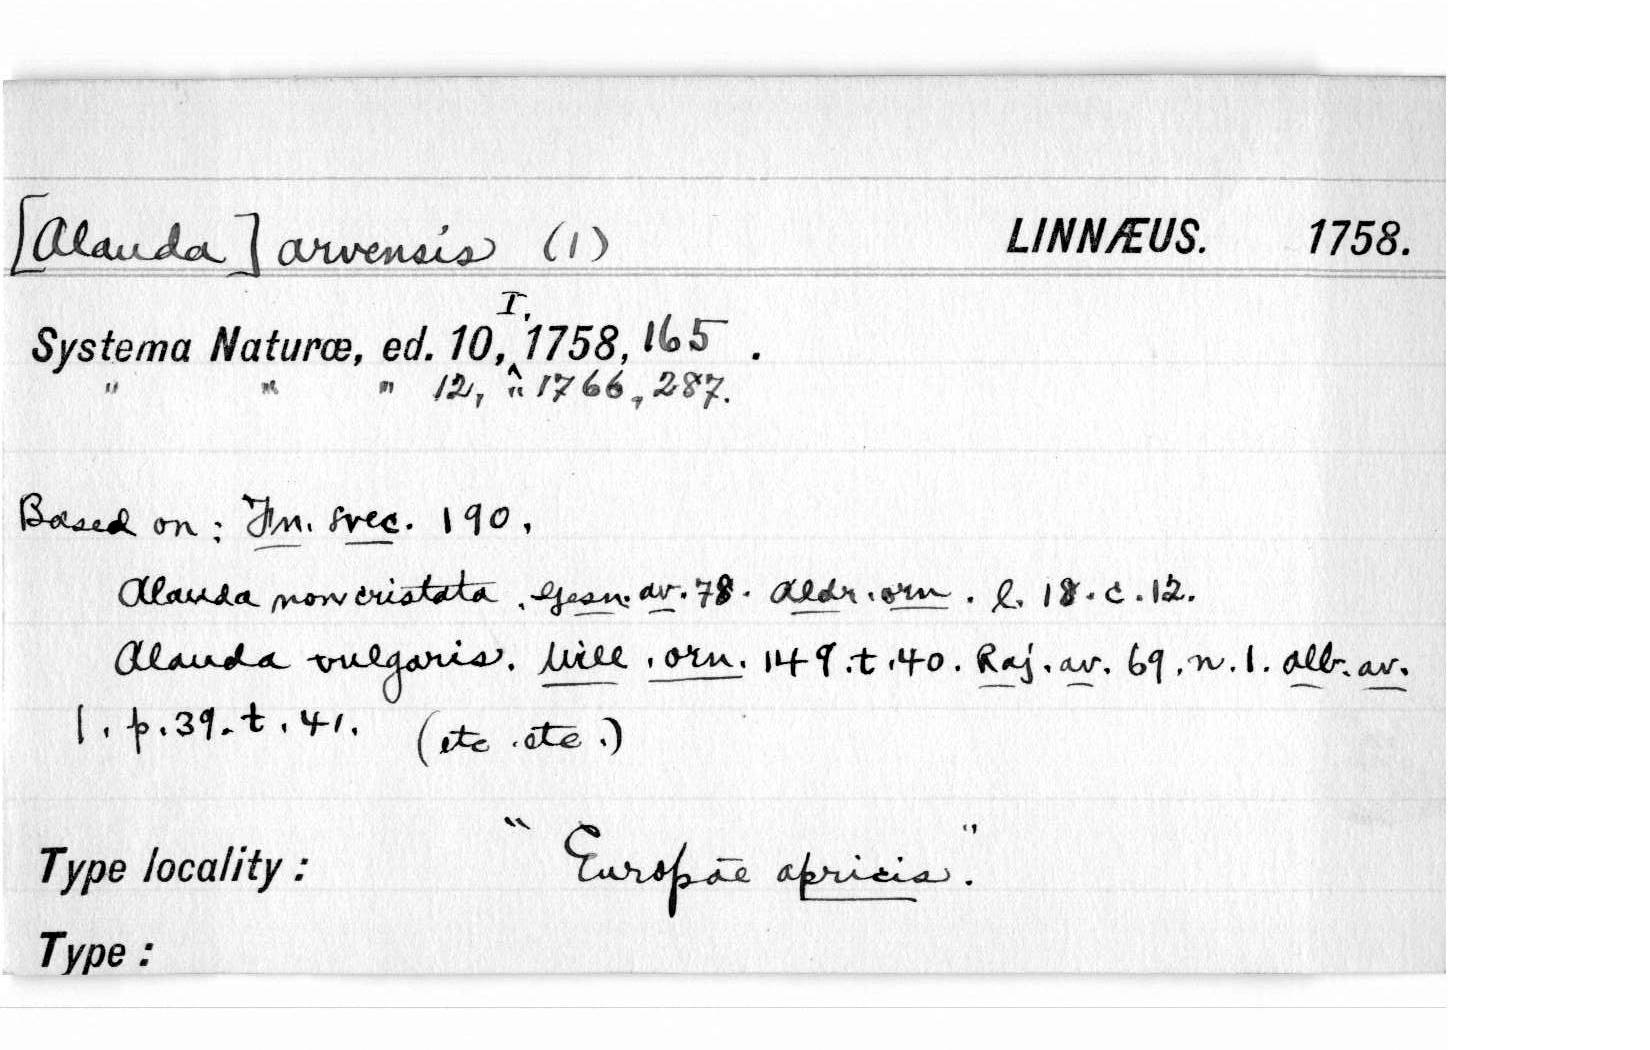 [Alauda] arvensis (1) LINNÆUS. 1758.
Systema Naturæ, ed. 10, I, 1758, 165.
" " " 12, " 1766, 287.
Based on: Fn. svec. 190,
Alauda non cristata. Gesn. av. 78. Aldr. orn. l. 18. c. 12.
Alauda vulgaris. Will. orn. 149. t. 40. Raj. av. 69. n. 1. alb. av.
1. p. 39. t. 41. (etc. etc.)
Type locality: "Europae apricis."
Type: